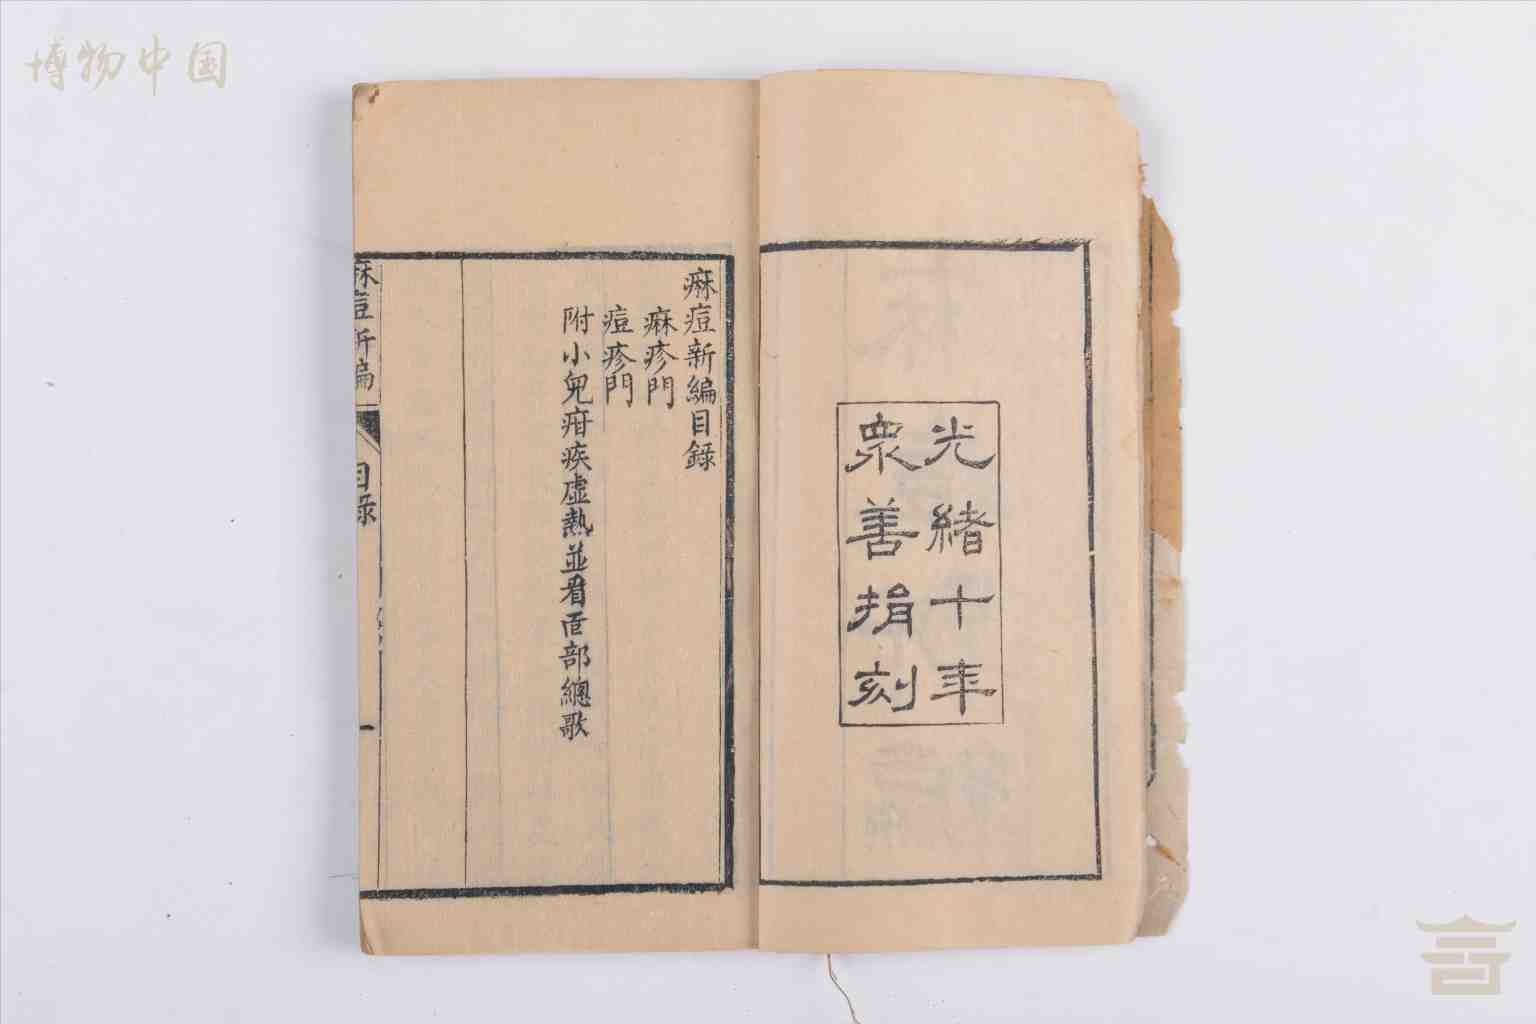 博物中国
光緒十年
衆善捐刻
痳痘新編目錄
痳疹門
痘疹門
附小兒疳疾虛熱並看面部總歌
痳痘新編
目錄
一